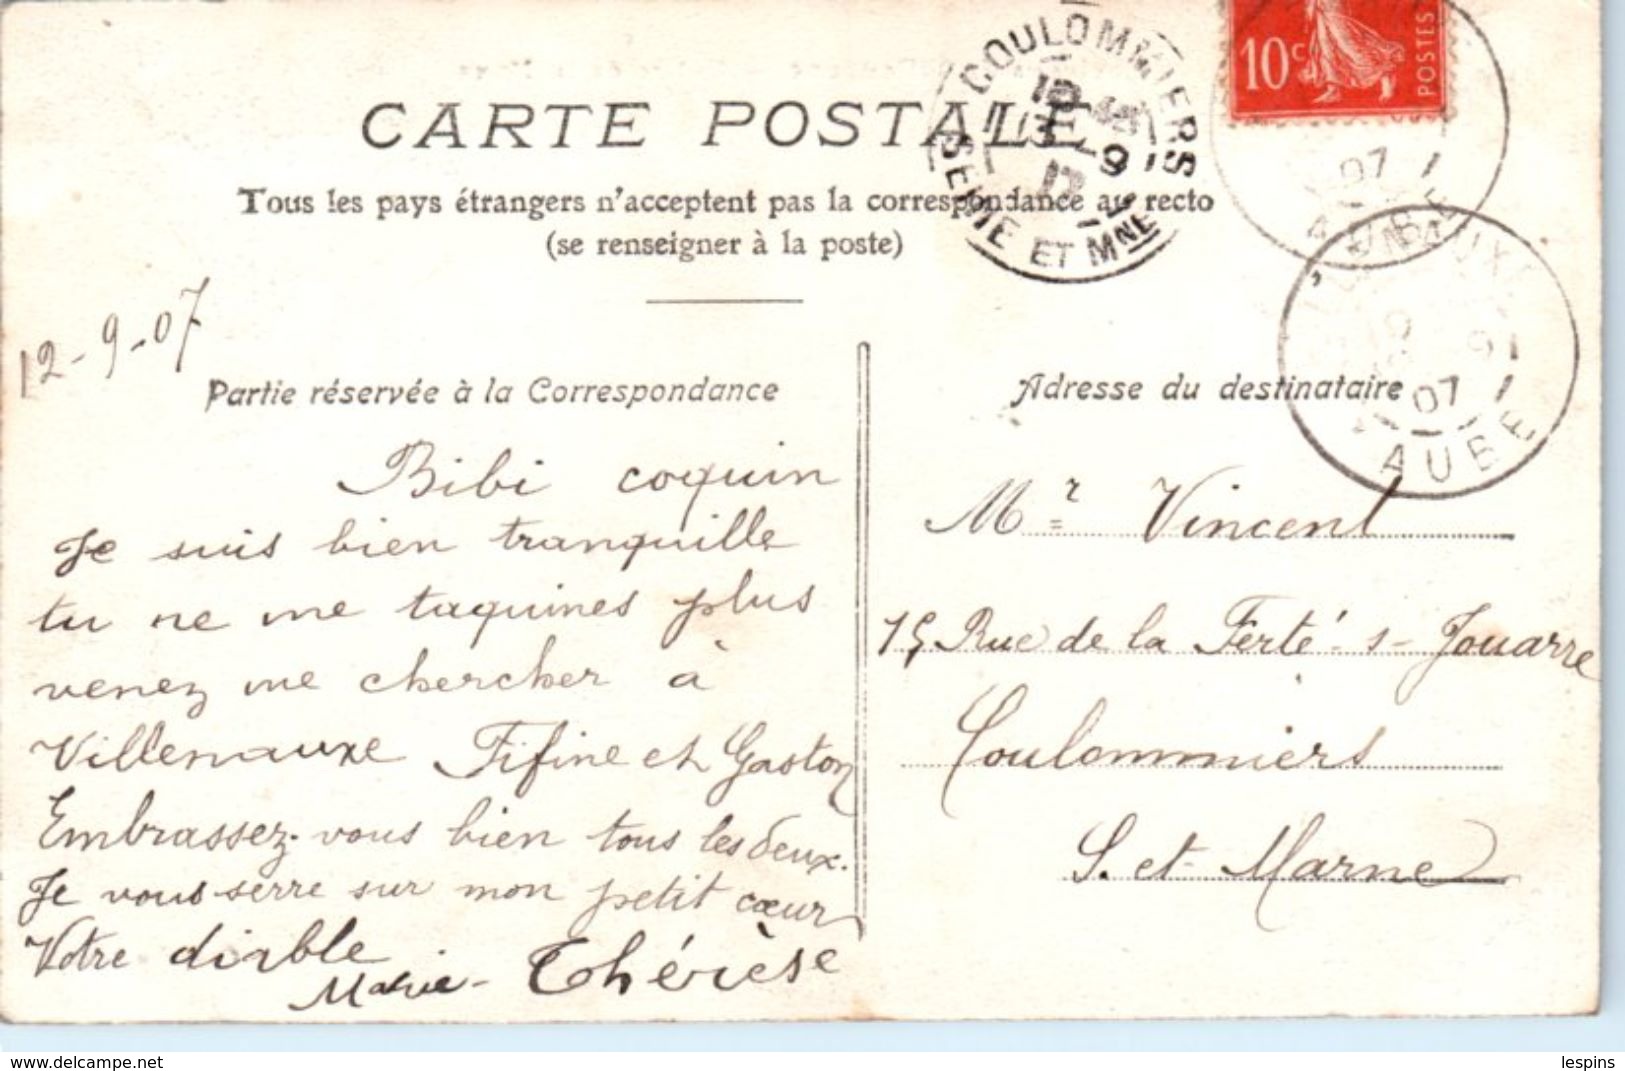 10c
POSTES
COULOMMIERS
SEINE ET MNE
CARTE POSTALE
Tous les pays étrangers n'acceptent pas la correspondance au recto
(se renseigner à la poste)
07
AUBE
07
AUBE
12-9-07
Partie réservée à la Correspondance
Bibi coquin
Je suis bien tranquille
tu ne me taquines plus
venez me chercher à
Villenauxe Fifine et Gaston
Embrassez-vous bien tous les deux.
Je vous serre sur mon petit cœur
Votre diable
Marie-Thérèse
Adresse du destinataire
Mr Vincent
15, Rue de la Ferté-s-Jouarre
Coulommiers
S. et Marne
www.delcampe.net
lespins